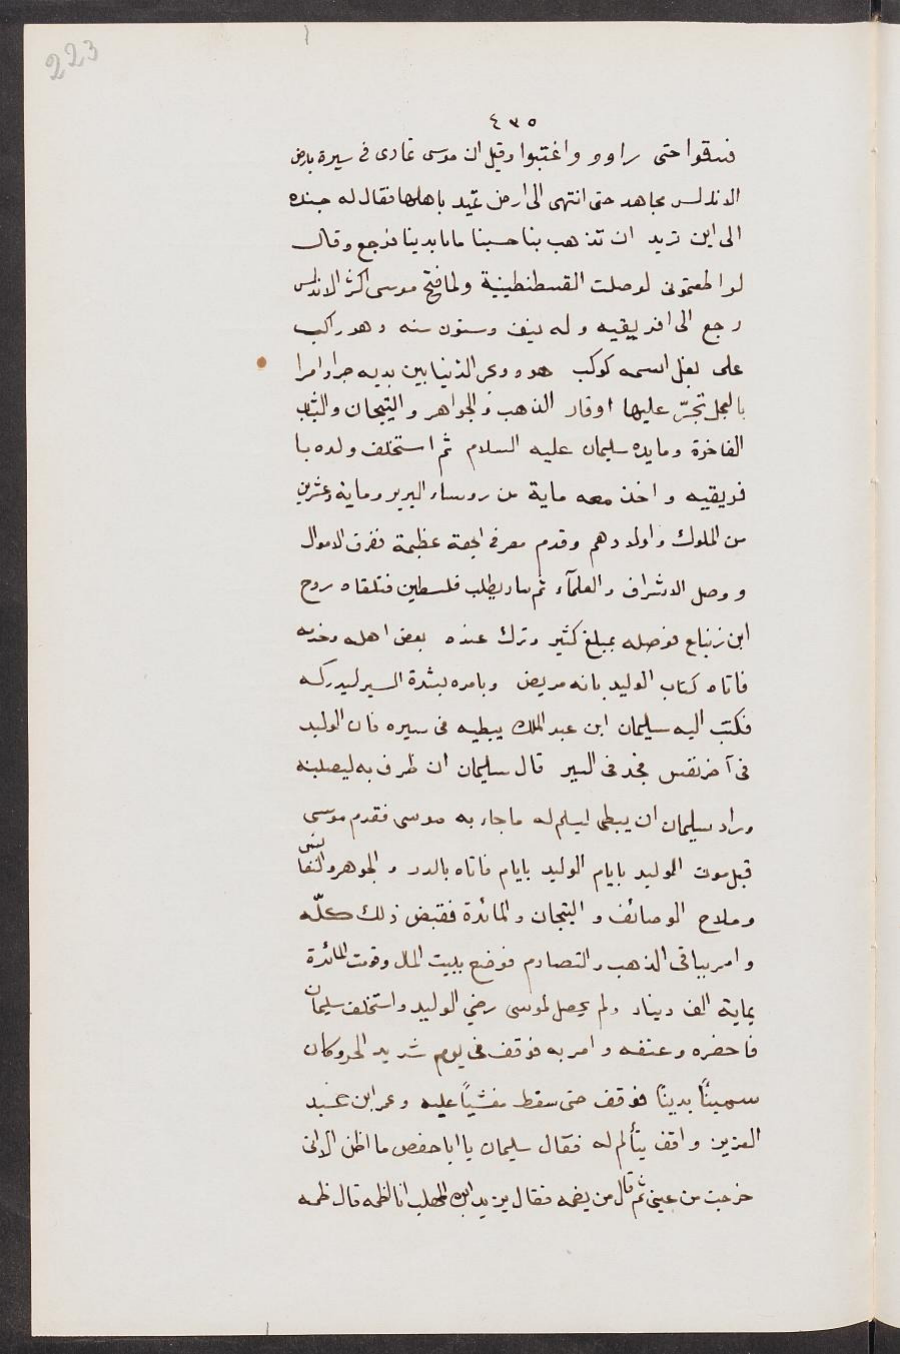 223
٤٣٥
فسقوا حتى راوو واغتبوا وقيل ان موسى تمادى فى سيرة بارض
الاندلس مجاهد حتى انتهى الى ارض تميد باهلها فقال له جنده
الى اين تريد ان تذهب بنا حسبنا مابايدينا فرجع وقال
لو اطعتمونى لوصلت القسطنطينية ولما فتح موسى اكثر الاندلس
رجع الى افريقيه وله نيف وستون سنه وهو راكب
على بغل اسمه كوكب هو وجر الدنيا بين يديه جرا امرا
بالعجل تجرّ عليها اوقار الذهب والجواهر والتيجان والثياب
الفاخرة ومايده سليمان عليه السلام ثم استخلف ولده با
فريقيه واخذ معه ماية من روساء البربر وماية وعشرين
من الملوك واولادهم وقدم مصر فى ابهة عظيمة ففرق الاموال
ووصل الاشراف والعلمآء ثم سار يطلب فلسطين فتلقاه روح
ابن زنباع فوصله بمبلغ كثير وترك عنده بعض اهله وخدمه
فاتاه كتاب الوليد بانه مريض ويامره بشدة السير ليدركه
فكتب اليه سليمان ابن عبد الملك يبطيه فى سيره فان الوليد
فى آخر نفس فجد فى السير قال سليمان ان ظرف به ليصلبنه
وراد سليمان ان يبطى ليسلم له ماجاء به موسى فقدم موسى
قبل موت الوليد بايام الوليد بايام فاتاه بالدر والجوهر والنفا
ئس
وملاح الوصائف والتيجان والمائدة فقبض ذلك كلّه
وامر بباقى الذهب والتصادم فوضع ببيت المال وقومت المائدة
بماية الف دينار ولم يحصل لموسى رضي الوليد واستخلف سليمان
فاحضره وعنفه وامر به فوقف فى يوم شديد الحر وكان
سمينًا بدينًا فوقف حتى سقط مغشيًا عليه وعمر ابن عبد
العزيز واقف يتألم له فقال سليمان يا ابا حفص ما اظن الا انى
خرجت من عينى ثم قال من يضمه فقال يزيد ابن المهلب انا اضمه قال ضمه